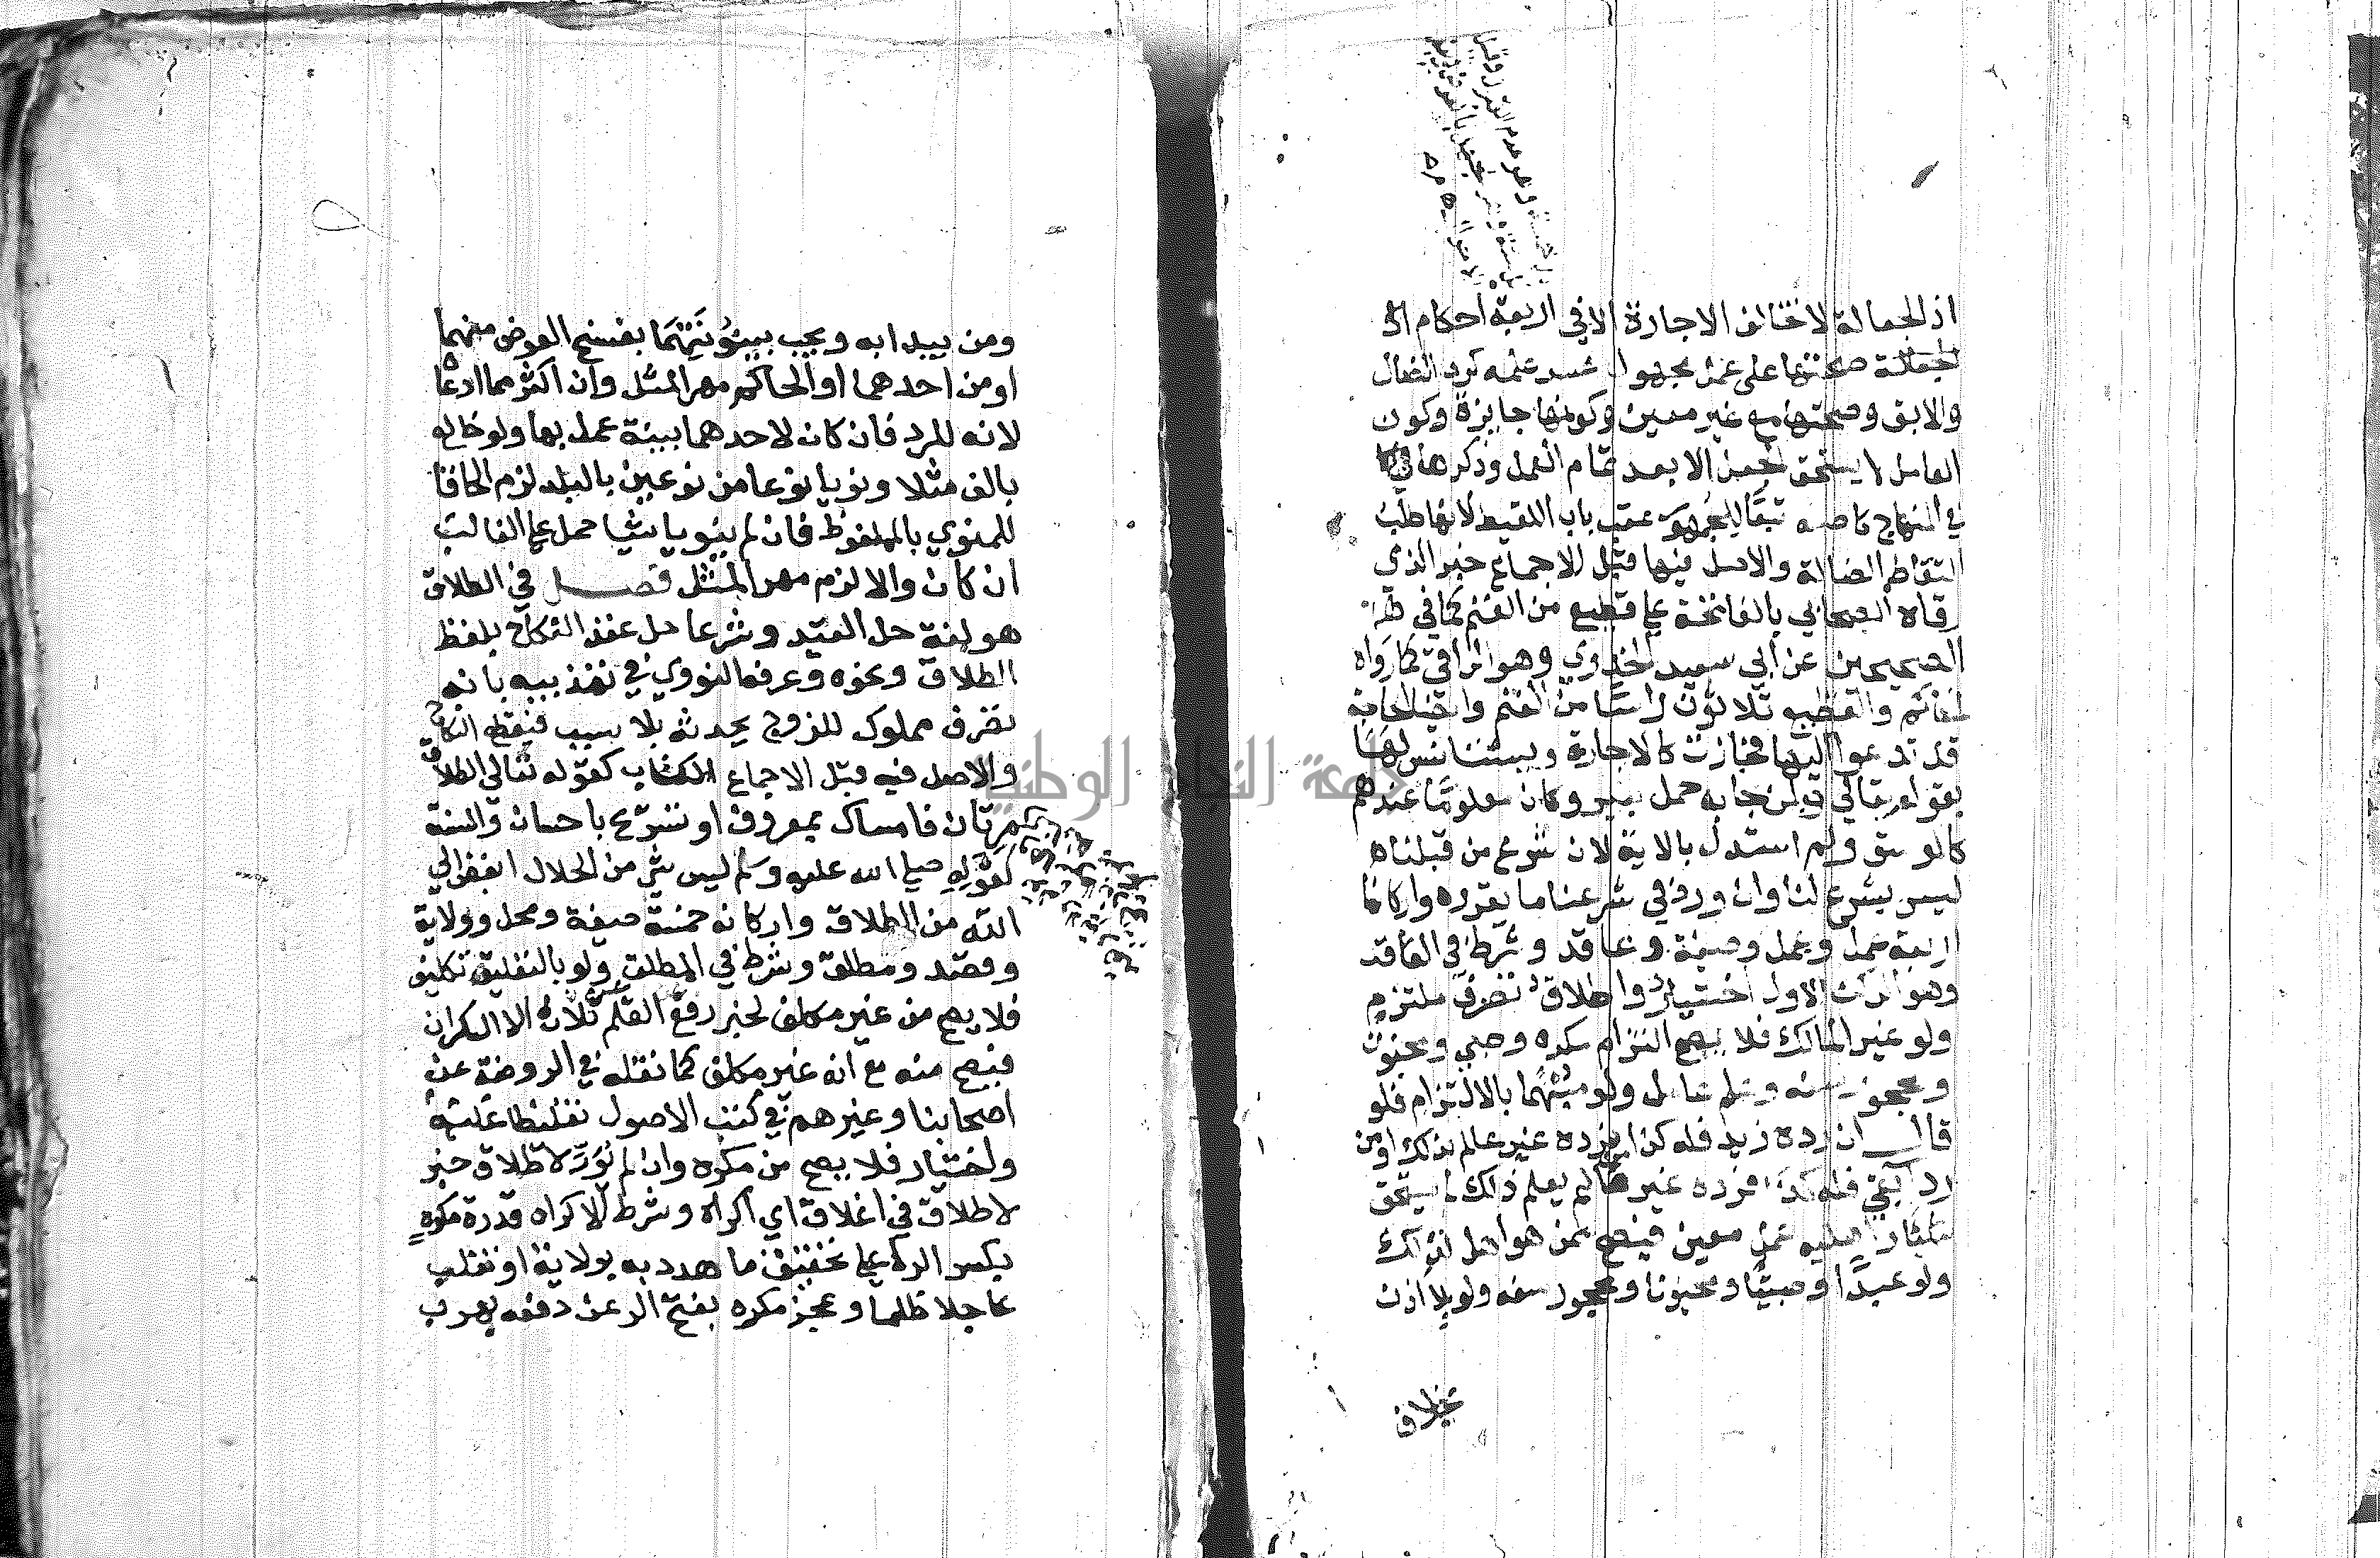 اذ الجعالة لا تخالف الاجارة الا في اربعة احكام
الجعالة صحتها على عمل مجهول عسر علمه كرد الضال
والابق وصحتها مع غير معين وكونها جايزة وكون
العامل لا يستحق الجعل الا بعد تمام العمل وذكرها
في المنهاج كاصله تبعا للجمهور عقب باب اللقيط لانها طلب
التقاط الضالة والاصل فيها قبل الاجماع خبر الذي
رقاه الصحابي بالفاتحة على قطيع من الغنم كما في
الصحيحين عن ابي سعيد الخدري وهو الراقي كما رواه
الحاكم والقطيع ثلاثون راسا من الغنم وايضا الحاجة
قد تدعو اليها فجازت كالاجارة ويستانس لها
بقوله تعالى ولمن جا به حمل بعير وكان معلوما عندهم
كالوسق ولم استدل بالاية لان شرع من قبلنا
ليس بشرع لنا وان ورد في شرعنا ما يقرره واركانها
اربعة عمل وجعل وصيغة وعاقد وشرط في العاقد
وهو الركن الاول اختيار واطلاق تصرف ملتزم
ولو غير المالك فلا يصح التزام مكره وصبي ومجنون
ومحجور سفه وعلم عامل ولو مبهما بالالتزام فلو
قال ان رده زيد فله كذا فرده غير عالم بذلك او من
رد آبقي فله كذا فرده غير عالم يعلم ذلك لم يستحق
واهلية عمل معين فيصح ممن هو اهل لذلك
ولو عبدا وصبيا ومجنونا ومحجور سفه ولو بلا اذن
بخلاف
ومن يبدا به ويجب ببينونتهما بفسخ العوض منهما
او من احدهما او الحاكم مهر المثل وان اكثر مما ادعا
لانه للرد فان كان لاحدهما بينة عمل بها ولو خالع
بالف مثلا ونويا نوعا من نوعين بالبلد لزم الحاقا
للمنوي بالملفوظ فان لم ينويا شيا حمل على الغالب
ان كان والا لزم مهر المثل فصل في الطلاق
هو لغة حل القيد وشرعا حل عقد النكاح بلفظ
الطلاق ونحوه وعرفه النووي في تهذيبه بانه
تصرف مملوك للزوج يحدثه بلا سبب فيقطع النكاح
والاصل فيه قبل الاجماع الكتاب كقوله تعالى الطلاق
مرتان فامساك بمعروف او تسريح باحسان والسنة
كقوله صلى الله عليه وسلم ليس شي من الحلال ابغض الى
الله من الطلاق واركانه خمسة صيغة ومحل وولاية
وقصد ومطلق وشرط في المطلق ولو بالتعليق تكليف
فلا يصح من غير مكلف لخبر رفع القلم عن ثلاث الا السكران
فيصح منه مع انه غير مكلف كما نقله في الروضة عن
اصحابنا وغيرهم في كتب الاصول تغليظا عليه
واختيار فلا يصح من مكره وان لم يور لا طلاق خبر
لا طلاق في اغلاق اي اكراه وشرط الاكراه قدرة مكره
بكسر الره على تحقيق ما هدد به بولاية او تغلب
عاجلا ظلما وعجز مكره بفتح الر عن دفعه بهرب